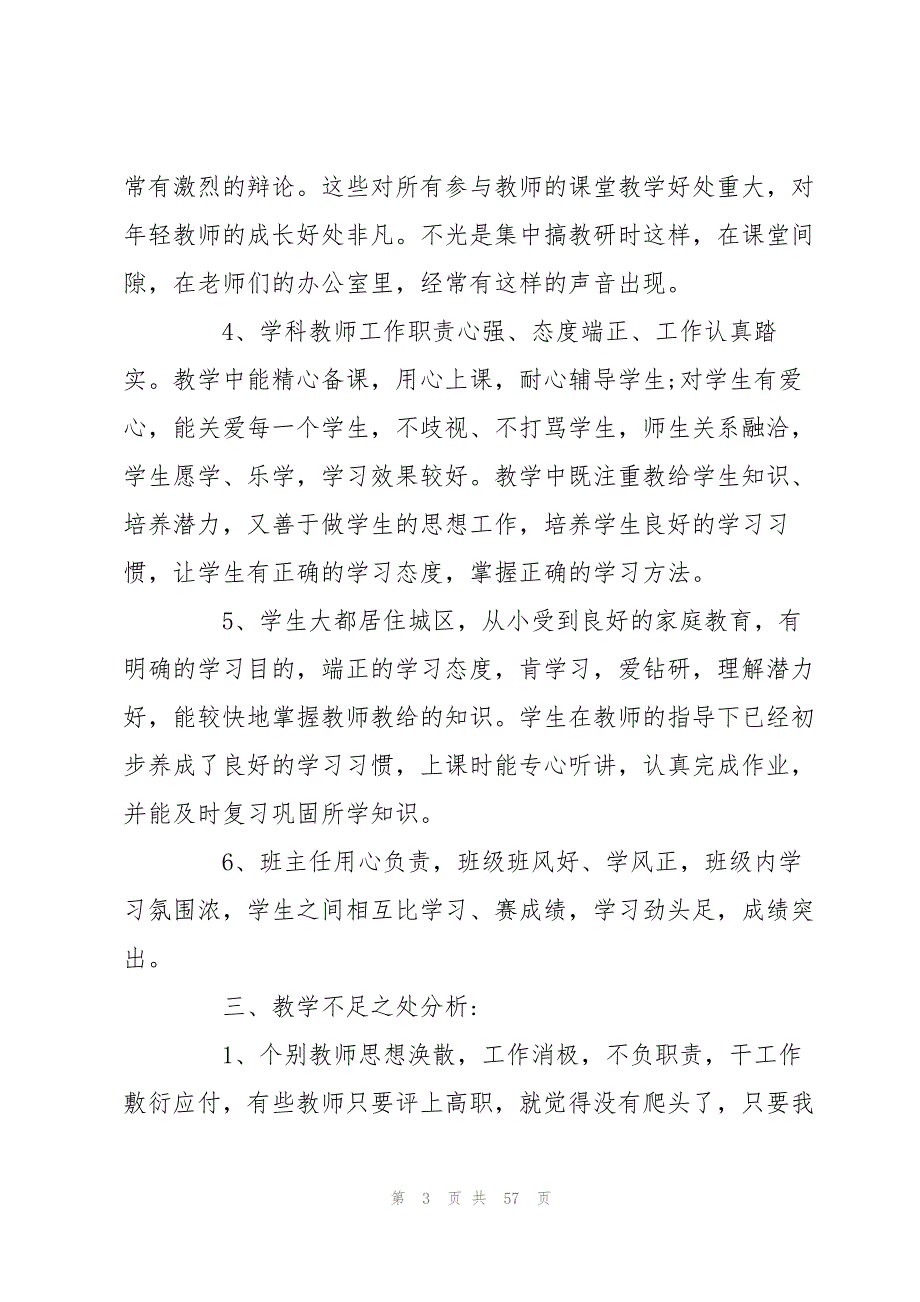 常有激烈的辩论。这些对所有参与教师的课堂教学好处重大，对
年轻教师的成长好处非凡。不光是集中搞教研时这样，在课堂间
隙，在老师们的办公室里，经常有这样的声音出现。
4、学科教师工作职责心强、态度端正、工作认真踏
实。教学中能精心备课，用心上课，耐心辅导学生;对学生有爱
心，能关爱每一个学生，不歧视、不打骂学生，师生关系融洽，
学生愿学、乐学，学习效果较好。教学中既注重教给学生知识、
培养潜力，又善于做学生的思想工作，培养学生良好的学习习
惯，让学生有正确的学习态度，掌握正确的学习方法。
5、学生大都居住城区，从小受到良好的家庭教育，有
明确的学习目的，端正的学习态度，肯学习，爱钻研，理解潜力
好，能较快地掌握教师教给的知识。学生在教师的指导下已经初
步养成了良好的学习习惯，上课时能专心听讲，认真完成作业，
并能及时复习巩固所学知识。
6、班主任用心负责，班级班风好、学风正，班级内学
习氛围浓，学生之间相互比学习、赛成绩，学习劲头足，成绩突
出。
三、教学不足之处分析:
1、个别教师思想涣散，工作消极，不负职责，干工作
敷衍应付，有些教师只要评上高职，就觉得没有爬头了，只要我
第 3 页 共 57 页